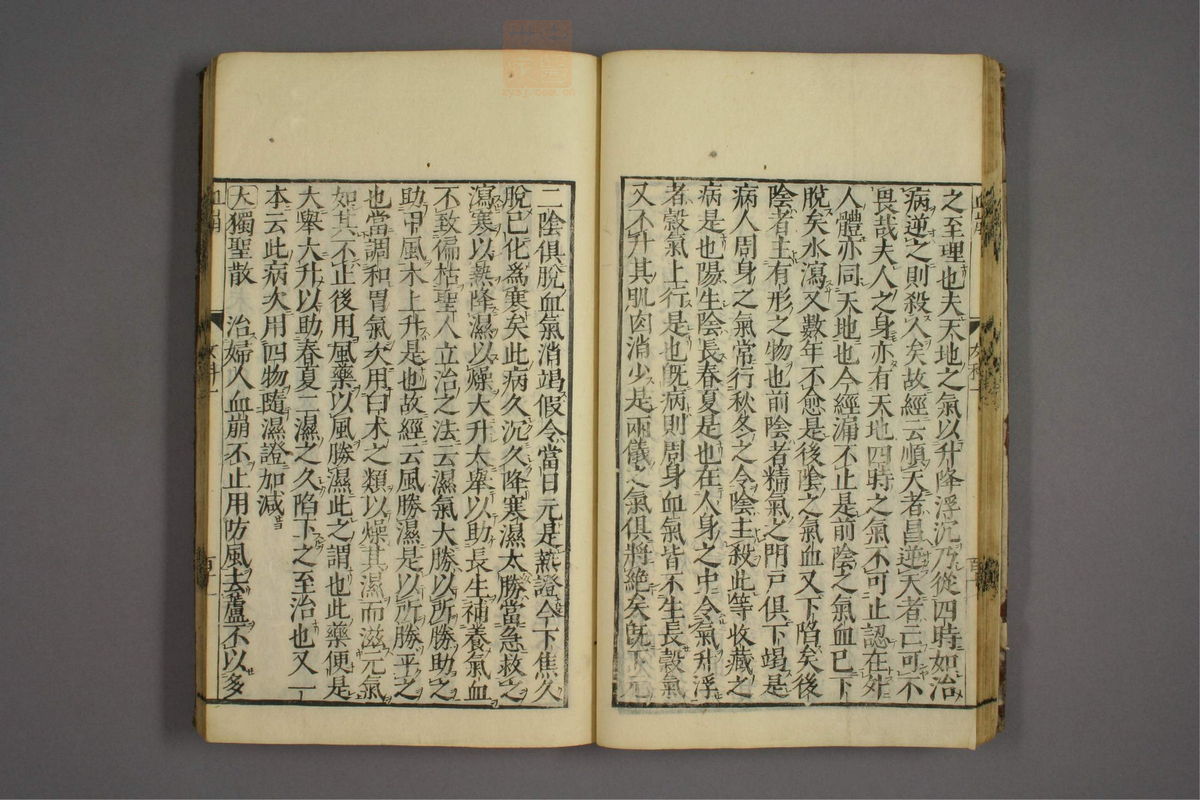 之至理也夫天地之氣以升降浮沉乃從四時如治
病逆之則殺人矣故經云順天者昌逆天者亡可不
畏哉夫人之身亦有天地四時之氣不可止認在外
人體亦同天地也今經漏不止是前陰之氣血已下
脫矣水瀉又數年不愈是後陰之氣血又下陷矣後
陰者主有形之物也前陰者精氣之門戶俱下竭是
病人周身之氣常行秋冬之令陰主殺此等收藏之
病是也陽生陰長春夏是也在人身之中令氣升浮
者穀氣上行是也既病則周身血氣皆不生長穀氣
又不升其肌肉消少是兩儀之氣俱將絕矣既下元
二陰俱脫血氣消竭假令當日元是熱證今下焦久
脫已化爲寒矣此病久沉久降寒濕太勝當急救之
瀉寒以熱降濕以燥大升大舉以助長生補養氣血
不致偏枯聖人立治之法云濕氣大勝以所勝助之
助甲風木上升是也故經云風勝濕是以所勝平之
也當調和胃氣次用白朮之類以燥其濕而滋元氣
如其不止後用風藥以風勝濕此之謂也此藥便是
大舉大升以助春夏二濕之久陷下之至治也又一
本云此病次用四物隨濕證加減
大獨聖散 治婦人血崩不止用防風去蘆不以多
血崩
女科一